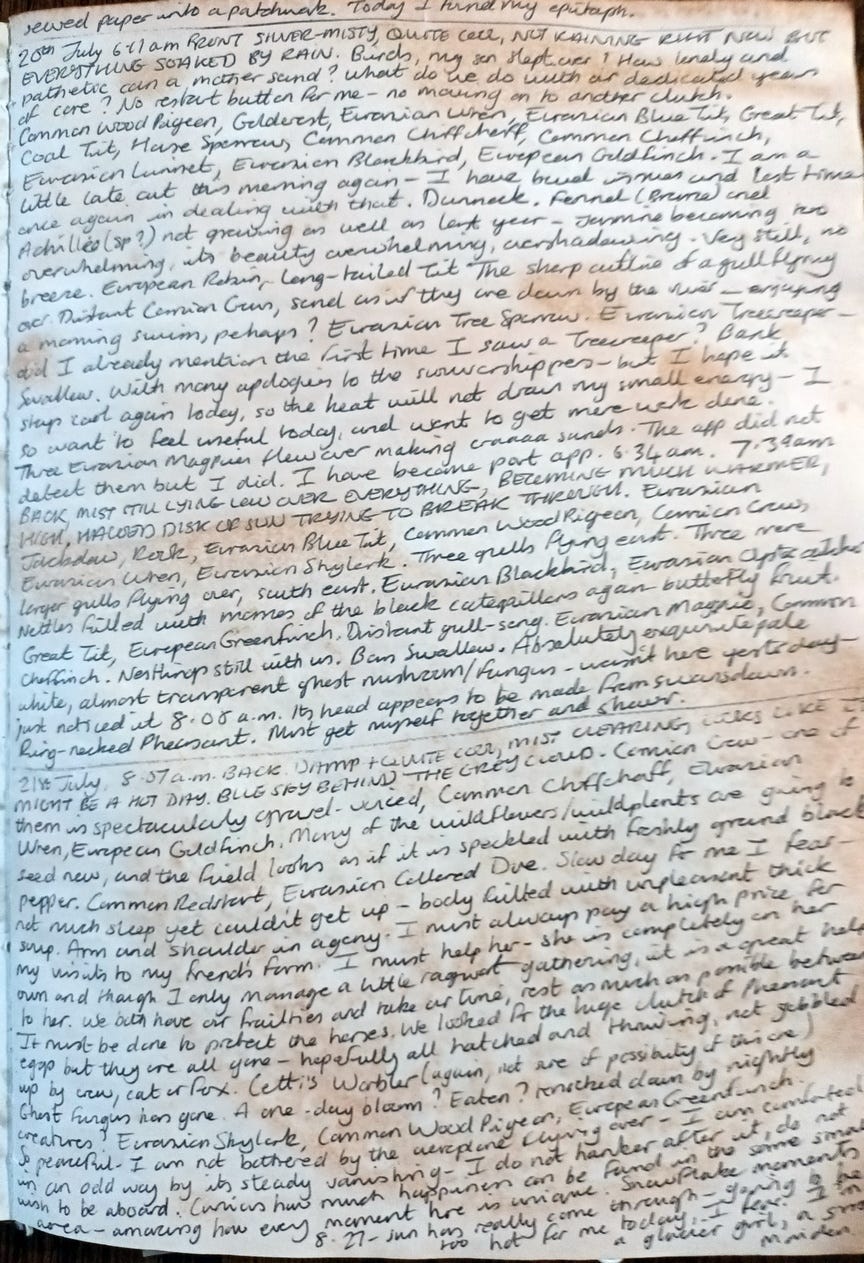 sewed paper into a patchwork. Today I found my epitaph.
20th July 6.11 am FRONT SILVER-MISTY, QUITE COOL, NOT RAINING RIGHT NOW BUT
EVERYTHING SOAKED BY RAIN. Birds, my son slept over! How lonely and
pathetic can a mother sound? What do we do with our dedicated years
of care? No restart button for me - no moving on to another clutch.
Common Wood Pigeon, Goldcrest, Eurasian Wren, Eurasian Blue Tit, Great Tit,
Coal Tit, House Sparrow, Common Chiffchaff, Common Chaffinch,
Eurasian Linnet, Eurasian Blackbird, European Goldfinch. I am a
little late out this morning again - I have bowel issues and lost time
once again in dealing with that. Dunnock. Fennel (Bronze) and
Achillea (sp?) not growing as well as last year - Jasmine becoming too
overwhelming, its beauty overwhelming, overshadowing. Very still, no
breeze. European Robin, Long-tailed Tit. The sharp outline of a gull flying
over. Distant Carrion Crows, sound as if they are down by the river - enjoying
a morning swim, perhaps? Eurasian Tree Sparrow. Eurasian Treecreeper -
did I already mention the first time I saw a Treecreeper? Barn
Swallow. With many apologies to the sunworshippers - but I hope it
stays cool again today, so the heat will not drain my small energy - I
so want to feel useful today, and want to get more work done.
Three Eurasian Magpies flew over making craaaa sounds. The app did not
detect them but I did. I have become part app. 6.34 am. 7.39am
BACK, MIST STILL LYING LOW OVER EVERYTHING, BECOMING MUCH WARMER,
HIGH, HALOED DISK OF SUN TRYING TO BREAK THROUGH. Eurasian
Jackdaw, Rook, Eurasian Blue Tit, Common Wood Pigeon, Carrion Crow,
Eurasian Wren, Eurasian Skylark. Three gulls flying east. Three more
larger gulls flying over, south east. Eurasian Blackbird, Eurasian
Nettles filled with masses of the black caterpillars again - butterfly fruit.
Great Tit, European Greenfinch. Distant gull-song. Eurasian Magpie, Common
Chaffinch. Nestlings still with us. Barn Swallow. Absolutely exquisite pale
white, almost transparent ghost mushroom/fungus - wasn't here yesterday -
just noticed at 8.08 a.m. Its head appears to be made from swansdown.
Ring-necked Pheasant. Must get myself together and shower.
21st July. 8.07 a.m. BACK. DAMP + QUITE COOL, MIST CLEARING, LOOKS LIKE IT
MIGHT BE A HOT DAY. BLUE SKY BEHIND THE GREY CLOUD. Carrion Crow - one of
them is spectacularly gravel-voiced, Common Chiffchaff, Eurasian
Wren, European Goldfinch. Many of the wildflowers/wildplants are going to
seed now, and the field looks as if it is speckled with freshly ground black
pepper. Common Redstart, Eurasian Collared Dove. Slow day for me I fear -
not much sleep yet couldn't get up - body filled with unpleasant thick
soup. Arm and shoulder in agony. I must always pay a high price for
my visits to my friend's farm. I must help her - she is completely on her
own and though I only manage a little ragwort gathering, it is a great help
to her. We both have our frailties and take our time, rest as much as possible between
It must be done to protect the horses. We looked for the huge clutch of Pheasant
eggs but they are all gone - hopefully all hatched and thriving, not gobbled
up by crow, cat or fox. Cetti's Warbler (again, not sure of possibility of this one)
Ghost Fungus has gone. A one-day bloom? Eaten? Knocked down by nightly
creatures? Eurasian Skylark, Common Wood Pigeon, European Greenfinch.
So peaceful - I am not bothered by the aeroplane flying over - I am comforted
in an odd way by its steady vanishing - I do not hanker after it, do not
wish to be aboard. Curious how much happiness can be found in the same small
area - amazing how every moment here is unique. Snowflake moments
8.27 - sun has really come through - going to be
too hot for me today, I fear. I am
a glacier girl, a snow
maiden